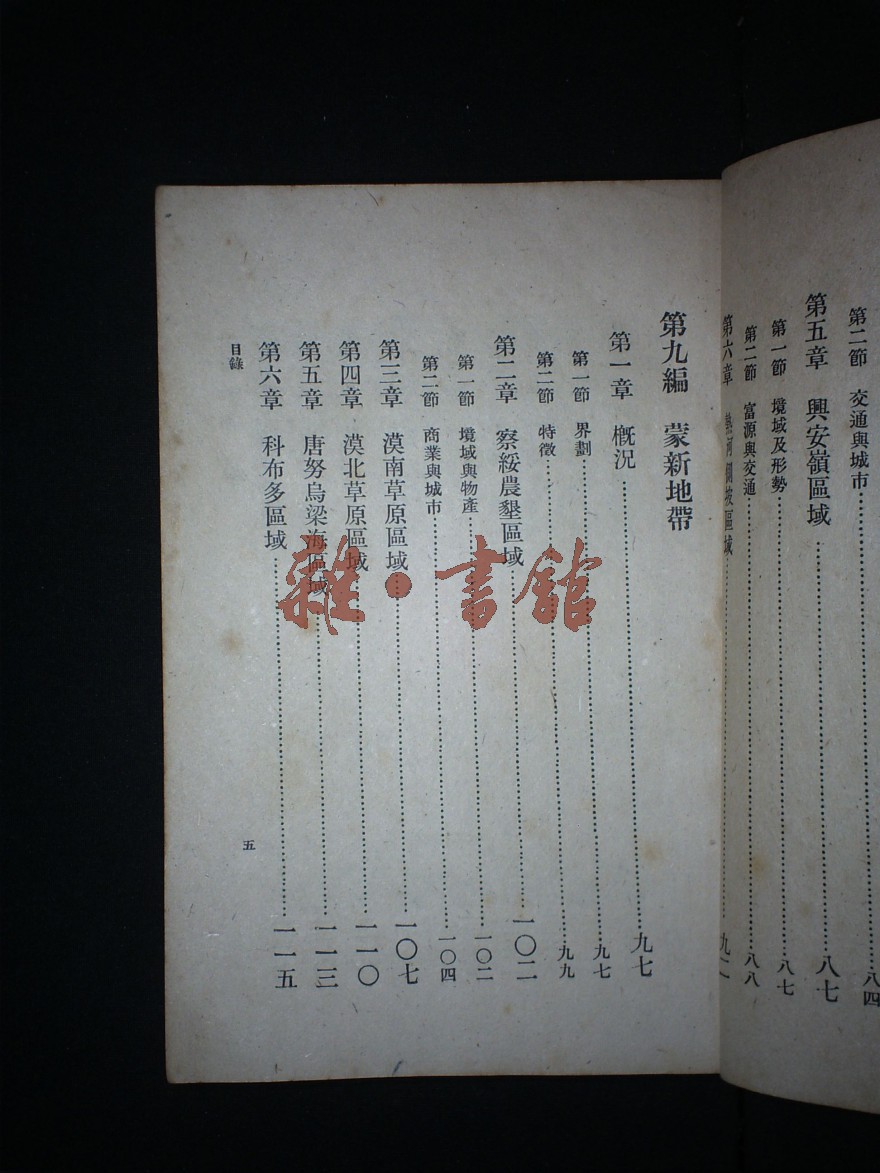 第二節 交通與城市……八四
第五章 興安嶺區域……八七
第一節 境域及形勢……八七
第二節 富源與交通……八八
第六章 熱河側坡區域……九二
第九編 蒙新地帶
第一章 概況……九七
第一節 界劃……九七
第二節 特徵……九九
第二章 察綏農墾區域……一〇二
第一節 境域與物產……一〇二
第二節 商業與城市……一〇四
第三章 漠南草原區域……一〇七
第四章 漠北草原區域……一一〇
第五章 唐努烏梁海區域……一一三
第六章 科布多區域……一一五
目錄
五
雜·書館